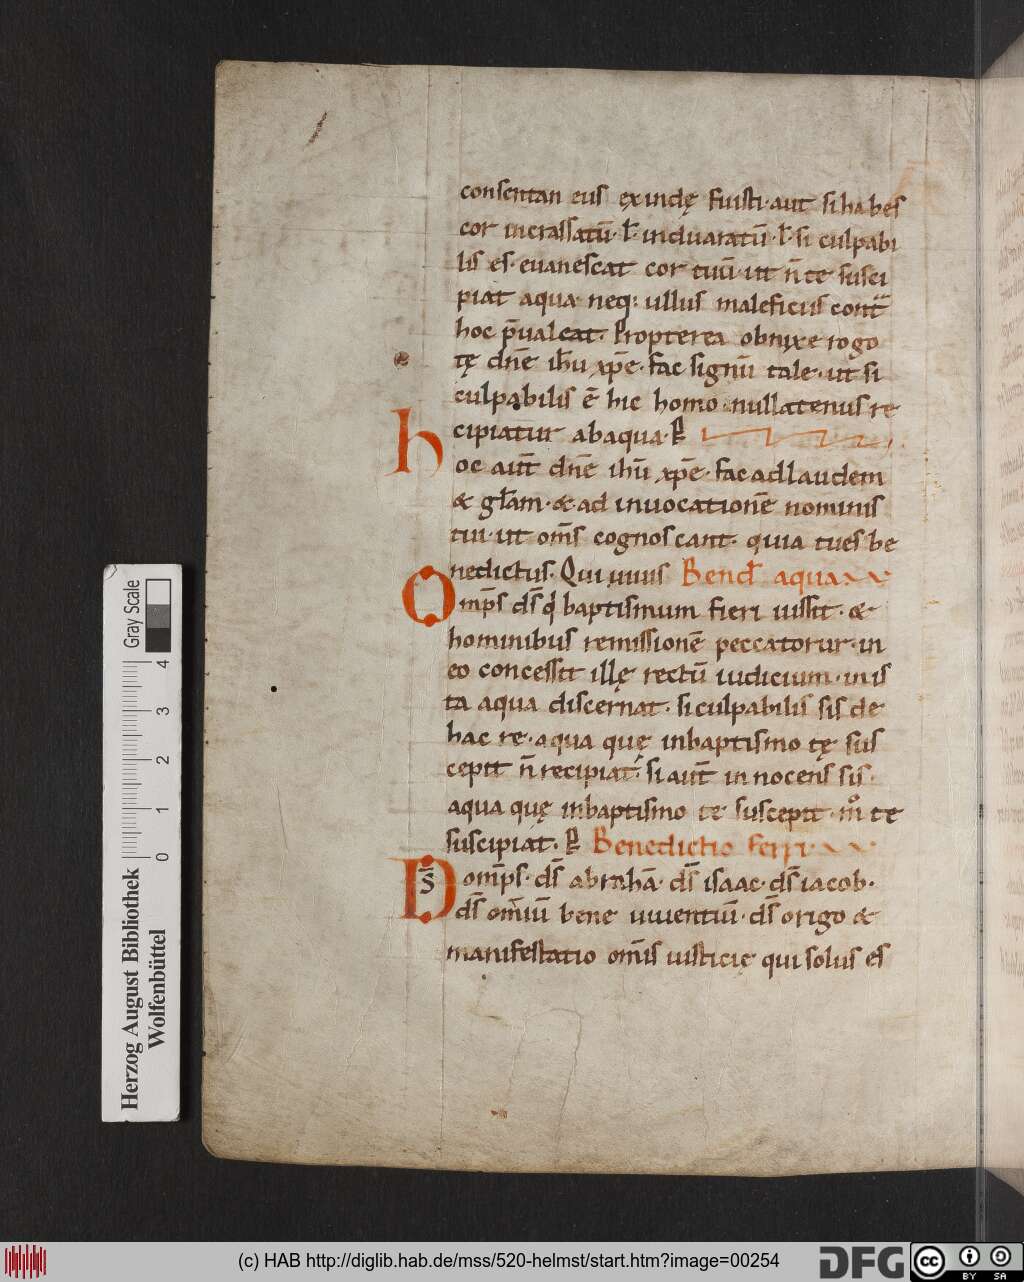 consentaneus exindę fuisti· aut si habes
cor incrassatū· ł induaratū· ł si culpabi
lis es· euanescat cor tuū· ut n̄ te susci
piat aqua· neq: ullus maleficus cont̄
hoc p̄ualeat. Propterea obnixe rogo
tę dn̄e ih̄u xp̄e· fac signū tale· ut si
culpabilis ē hic homo· nullatenus re
cipiatur abaqua· P̱
Hoc aut̄ dn̄e ih̄u xp̄e· fac ad laudem
& gl̄am· & ad inuocationē nominis
tui· ut om̄s cognoscant· quia tu es be
nedictus. Qui uiuis Bened̄ aquax
Omp̄s ds̄ q' baptismum fieri iussit· &
hominibus remissionē peccatorur· in
eo concessit illę rectū iudicium· in is
ta aqua discernat· si culpabilis sis de
hac re· aqua quę in baptismo tę sus
cepit n̄ recipiat· si aut̄ innocens sis·
aqua quę in baptismo te suscepit· m̊ te
suscipiat. P̱ Benedictio ferri
Ds̄ omp̄s· ds̄ abrahā· ds̄ isaac· ds̄ iacob·
ds̄ om̄iū bene uiuentiū· ds̄ origo &
manifestatio om̄is iusticię qui solus es
Herzog August Bibliothek
Wolfenbüttel
Gray Scale
0 1 2 3 4
(c) HAB http://diglib.hab.de/mss/520-helmst/start.htm?image=00254
DFG
cc BY SA